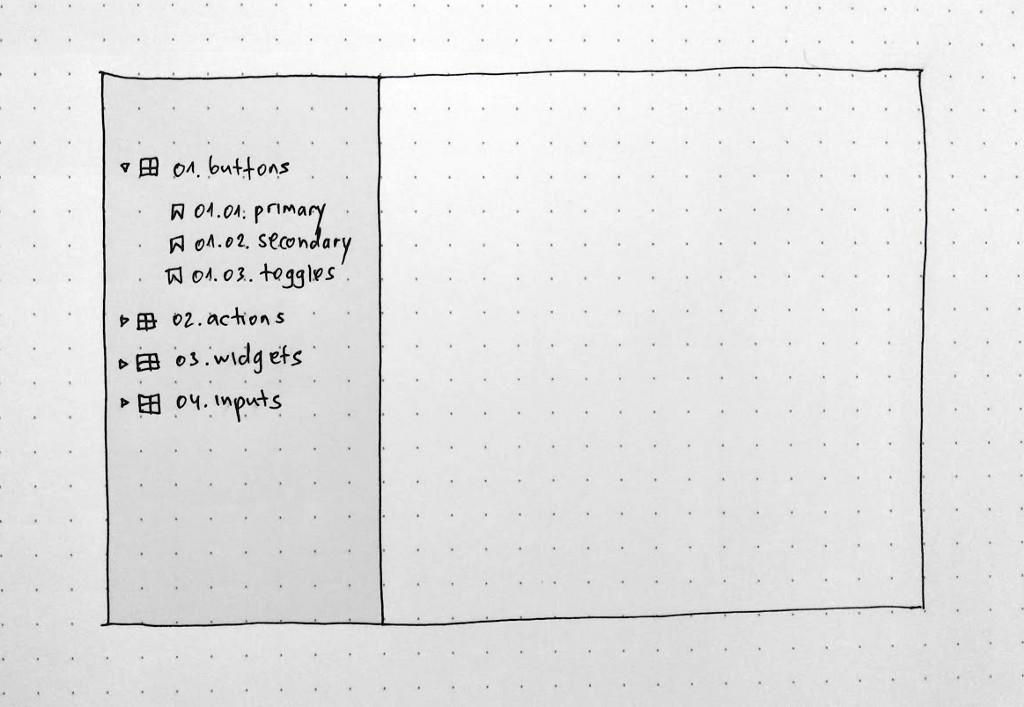 01. buttons
01.01. primary
01.02. secondary
01.03. toggles
02. actions
03. widgets
04. inputs